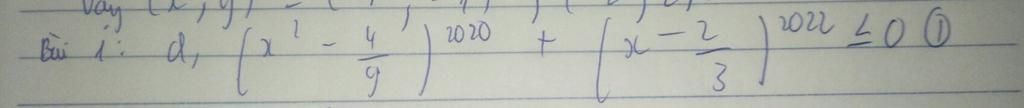 Vậy (x, y) = (
Bài 1: d, (x² - 4/9)²⁰²⁰ + (x - 2/3)²⁰²² ≤ 0 ①